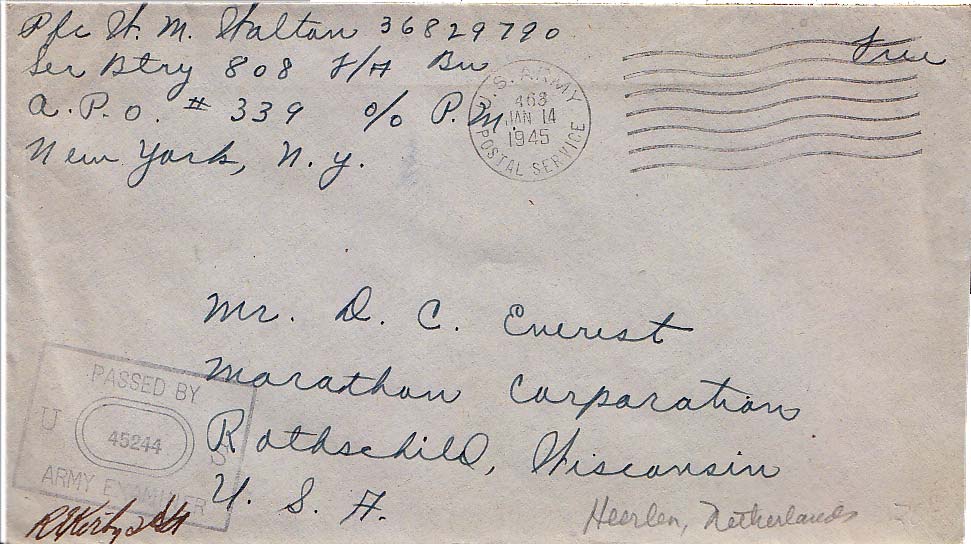 Pfc W. M. Walton 36829790
Ser Btry 808 F/A Bn
A.P.O. # 339 c/o P.M.
New York, N.Y.
Free
U.S. ARMY
463
JAN 14
1945
POSTAL SERVICE
Mr. D. C. Everest
Marathon Corporation
Rothschild, Wisconsin
U. S. A.
PASSED BY
U 45244 S
ARMY EXAMINER
Heerlen, Netherlands